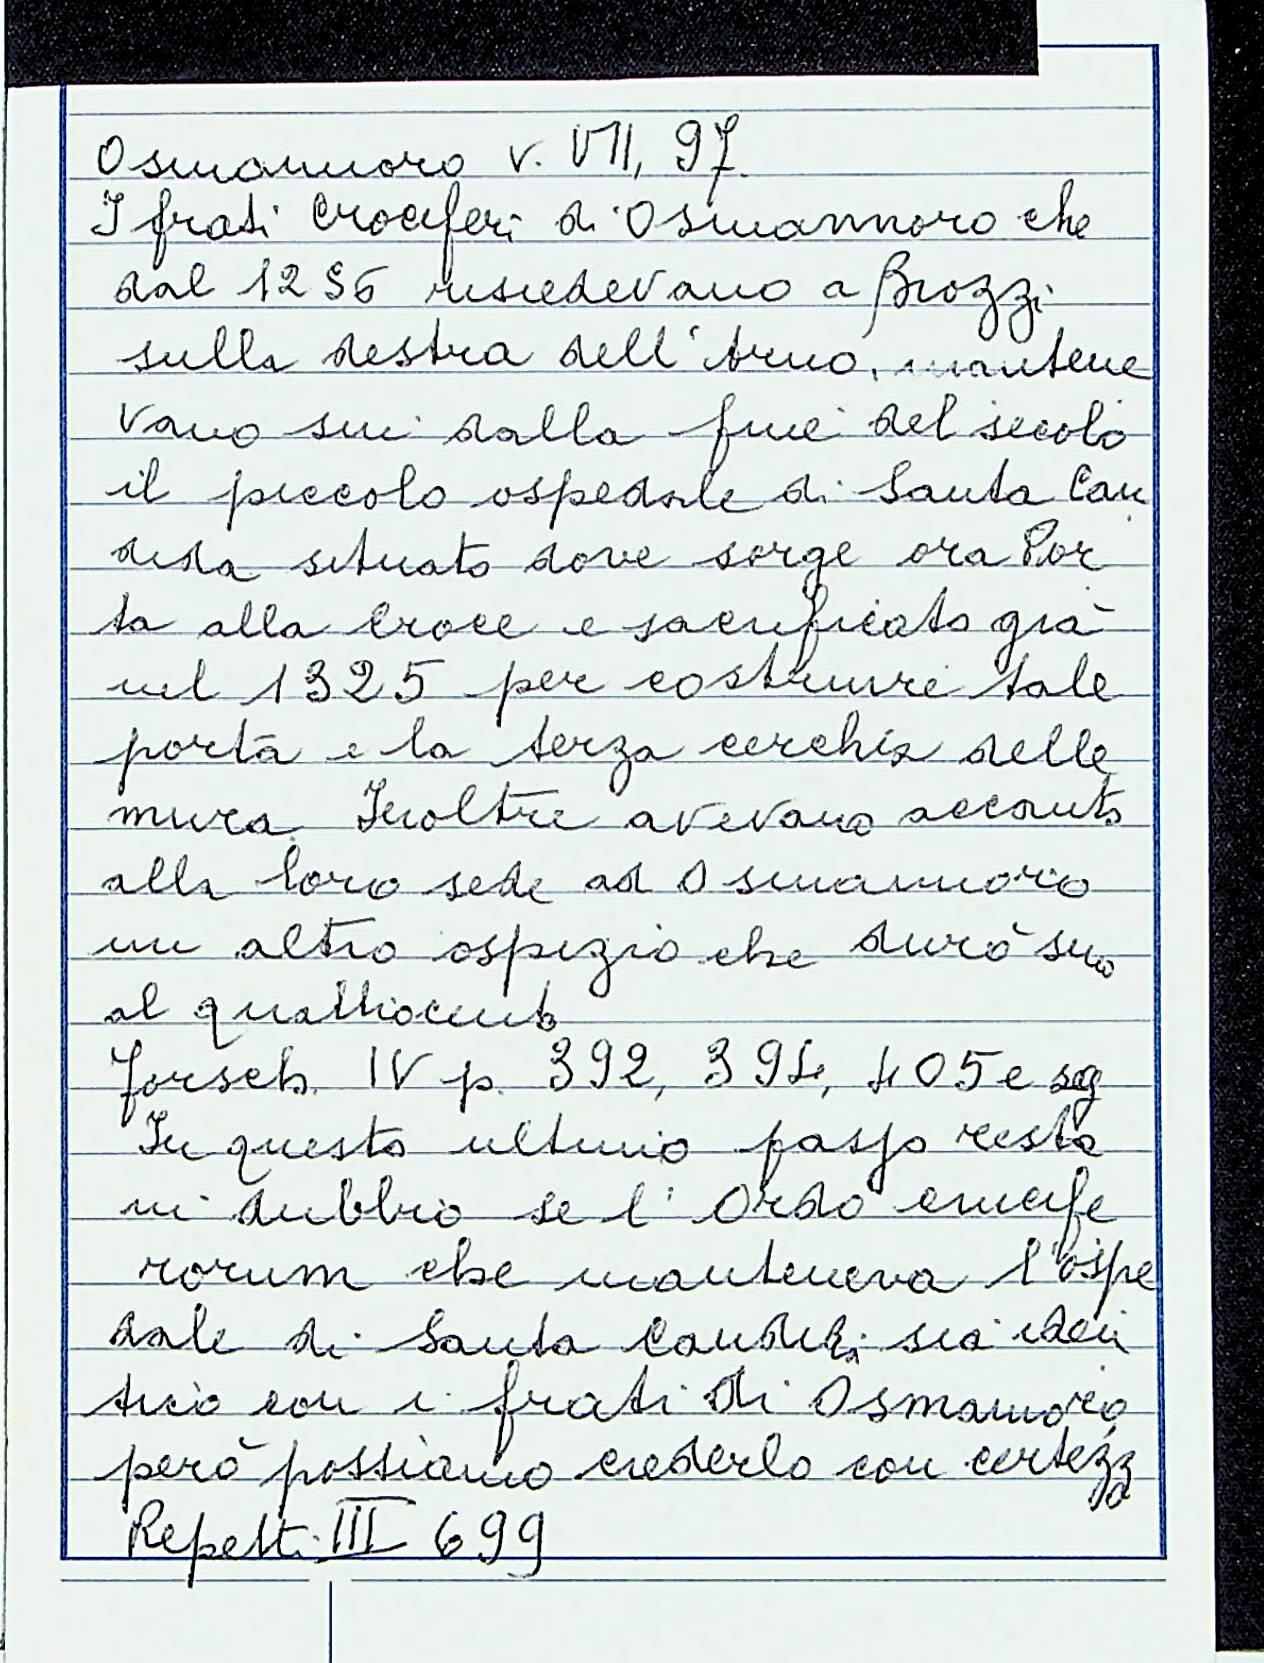 Osmannoro v. VII, 97.
I frati Crociferi di Osmannoro che
dal 1256 risiedevano a Brozzi
sulla destra dell'Arno, mantene
vano sin dalla fine del secolo
il piccolo ospedale di Santa Can
dida situato dove sorge ora Por
ta alla Croce e sacrificato già
nel 1325 per costruire tale
porta e la terza cerchia delle
mura. Inoltre avevano accanto
alla loro sede ad Osmannoro
un altro ospizio che durò sino
al quattrocento
Forsch. IV p. 392, 394, 405 e sg
In questo ultimo passo resta
in dubbio se l'Ordo crucife
rorum che manteneva l'ospe
dale di Santa Candida sia iden
tico con i frati di Osmannoro,
però possiamo crederlo con certezza
Repetti III 699